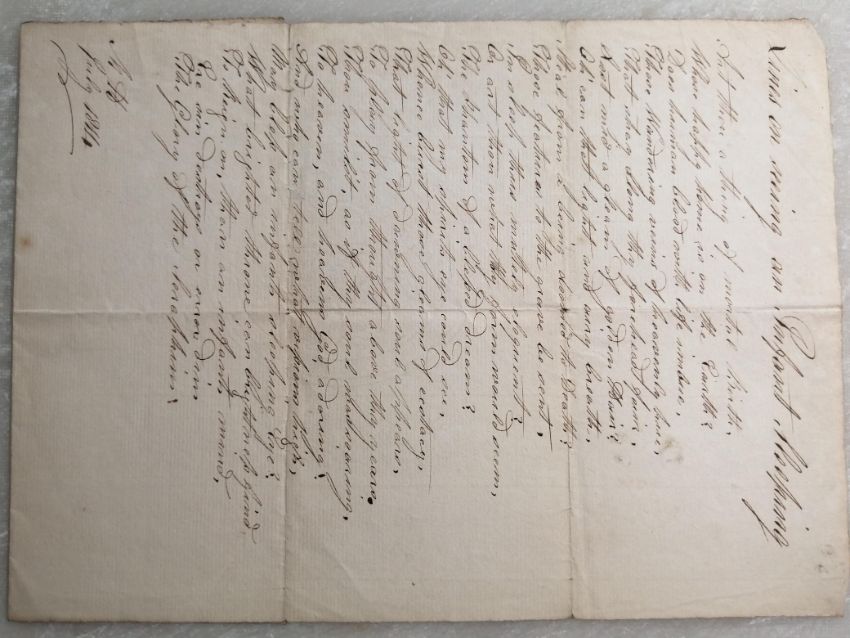 Lines on seeing an Infant Sleeping
Art thou a thing of mortal birth,
Whose happy home is on the Earth?
Does human blood with life imbue,
Those wandering veins of heavenly hue,
That stray along thy forehead fair,
Lost mid a gleam of golden Hair?
Oh can that light and airy breath,
Steal from a being doomed to Death;
Those features to the grave be sent,
In sleep thus mutely eloquent?
Or art thou what thy form would seem,
The phantom of a blessed dream?
Oh that my spirits eye could see,
Whence burst those gleams of ecstacy.
That light of dawning soul appears,
To play from thoughts above thy years.
Thou smilst, as if thy soul were soaring,
To heaven, and heavens God adoring!
And who can tell what visions high,
May bless an infants sleeping Eye?
What brighter throne can brightness find,
To reign on, than an infants mind,
Ere sin destroy or error dim
The Glory of the Seraphim.
July 1814